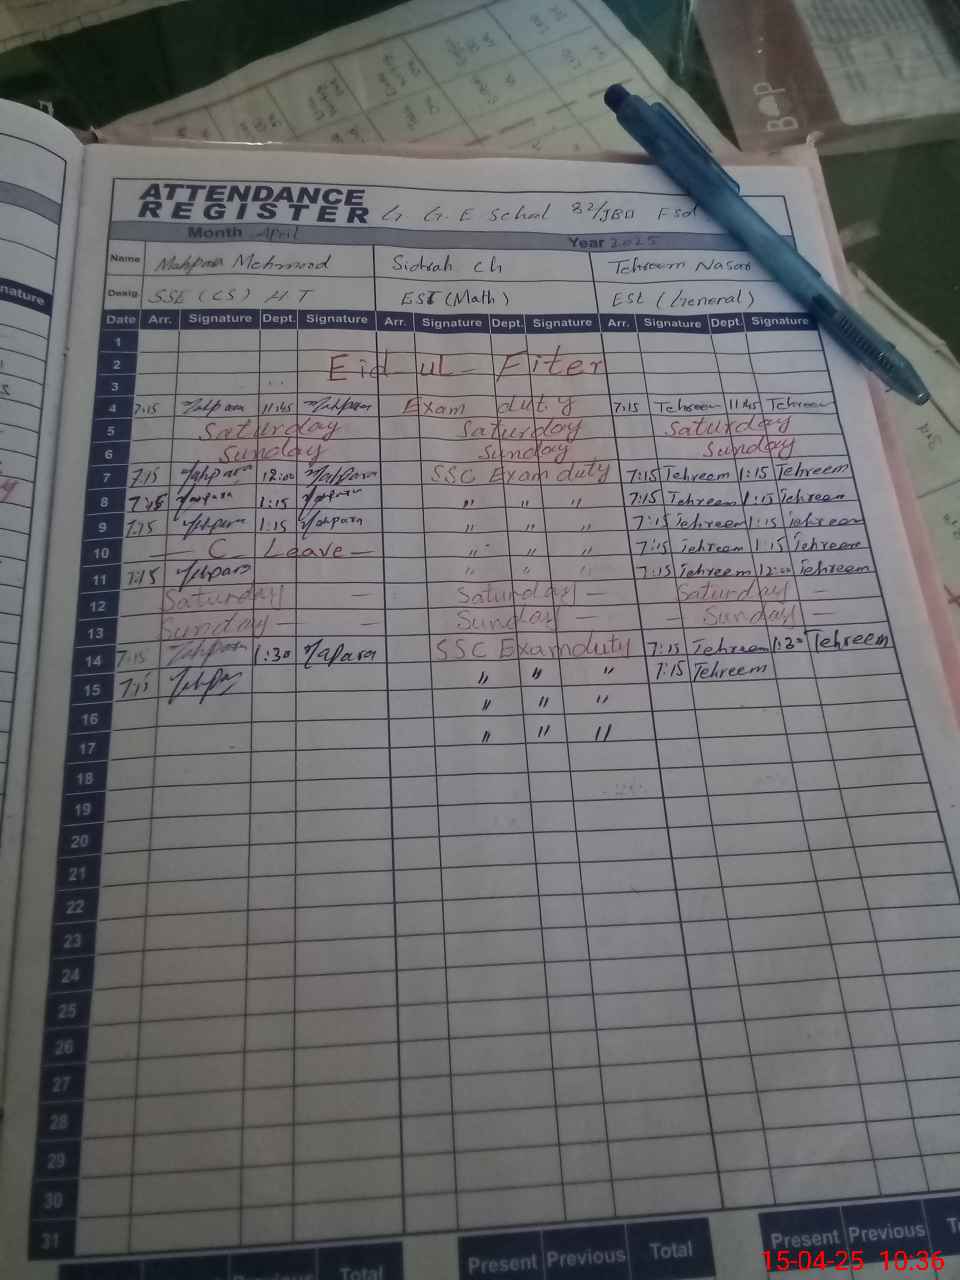 BOP
ATTENDANCE
REGISTER G. G. E School 82/JB Fsd
Month April Year 2025
Name Mahpara Mehmood Sidrah Ch Tehreem
Desig. SSE (CS) H T EST (Math) EST (General)
nature
Date Arr. Signature Dept. Signature Arr. Signature Dept. Signature Arr. Signature Dept. Signature
1
2 Eid ul - Fiter
3
4 7:15 Mahpara 11:45 Mahpara Exam duty 7:15 Tehreem 11:45 Tehreem
5 Saturday Saturday Saturday
6 Sunday Sunday Sunday
7 7:15 Mahpara 12:00 Mahpara SSC Exam duty 7:15 Tehreem 1:15 Tehreem
8 7:15 Mahpara 1:15 Mahpara " " " 7:15 Tehreem 1:15 Tehreem
9 7:15 Mahpara 1:15 Mahpara " " " 7:15 Tehreem 1:15 Tehreem
10 — C Leave — " " " 7:15 Tehreem 1:15 Tehreem
11 7:15 Mahpara " " " 7:15 Tehreem 12:00 Tehreem
12 Saturday — Saturday — Saturday —
13 Sunday — — Sunday — - Sunday —
14 7:15 Mahpara 1:30 Mapara SSC Exam duty 7:15 Tehreem 1:30 Tehreem
15 7:15 " " " 7:15 Tehreem
16 " " "
17 " " "
18
19
20
21
22
23
24
25
26
27
28
29
30
31
Previous Total Present Previous Total Present Previous
15-04-25 10:36